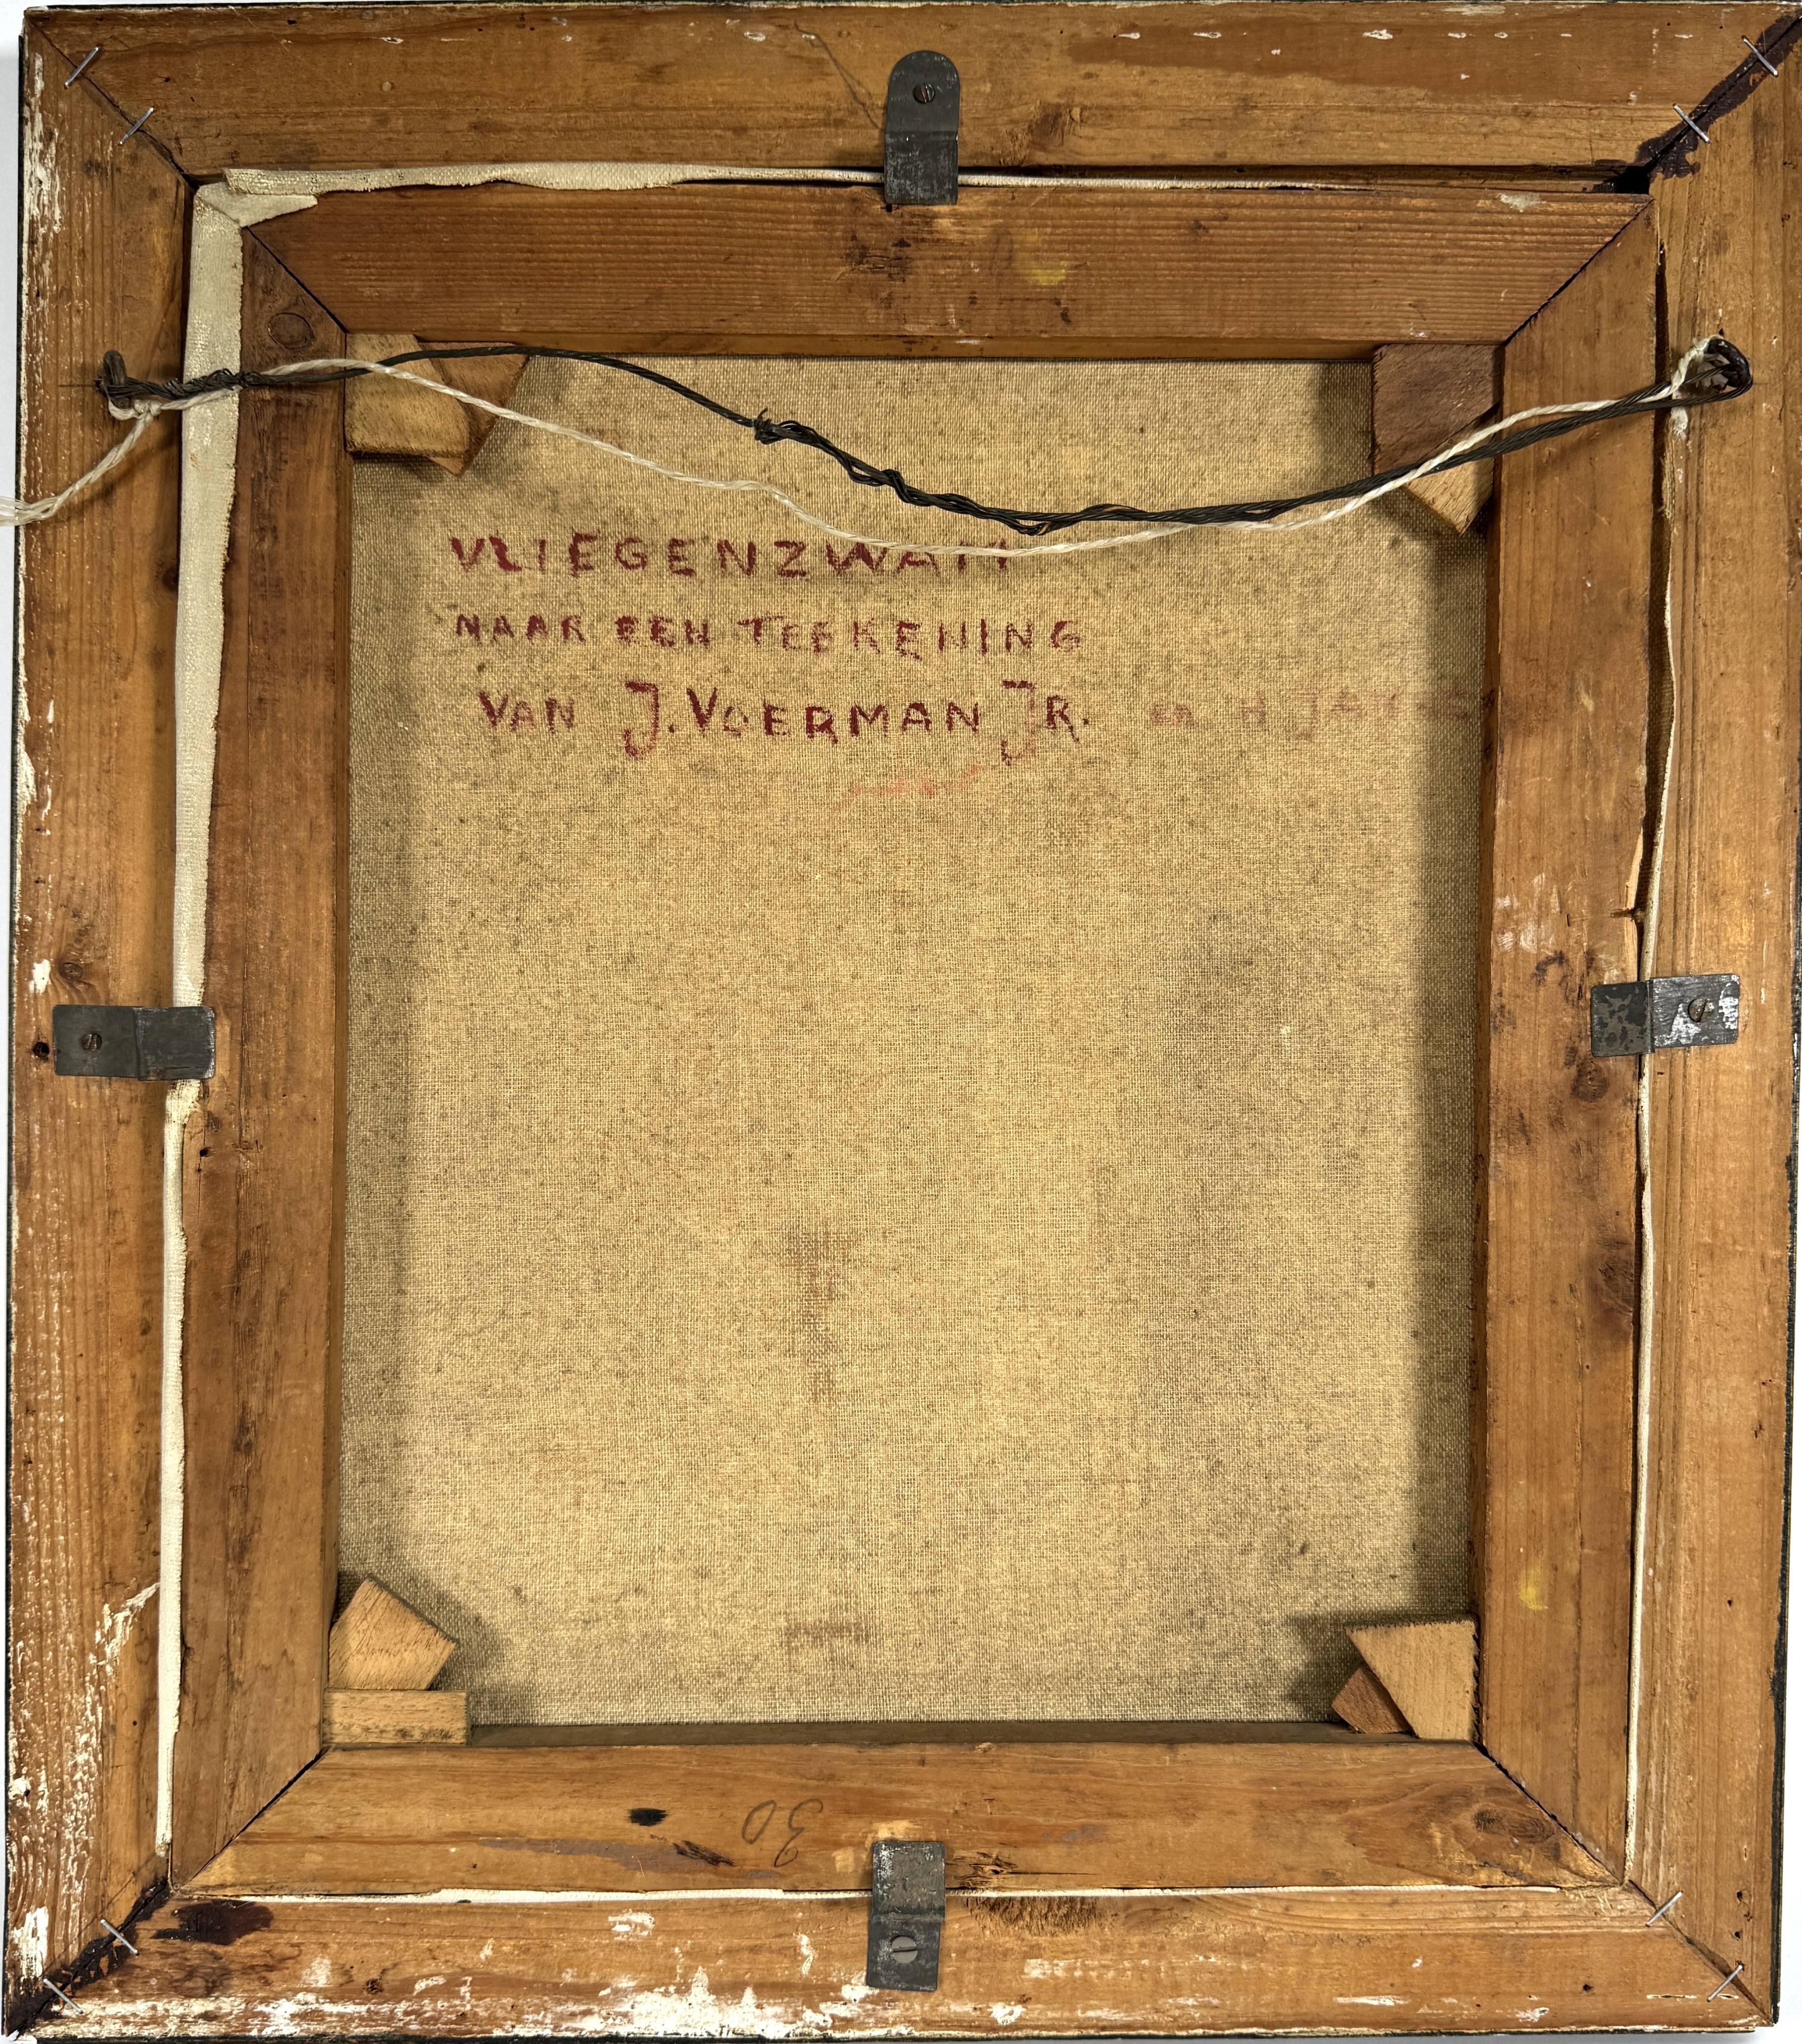 VLIEGENZWAM
NAAR EEN TEEKENING
VAN J. VOERMAN JR. en H JAN
30